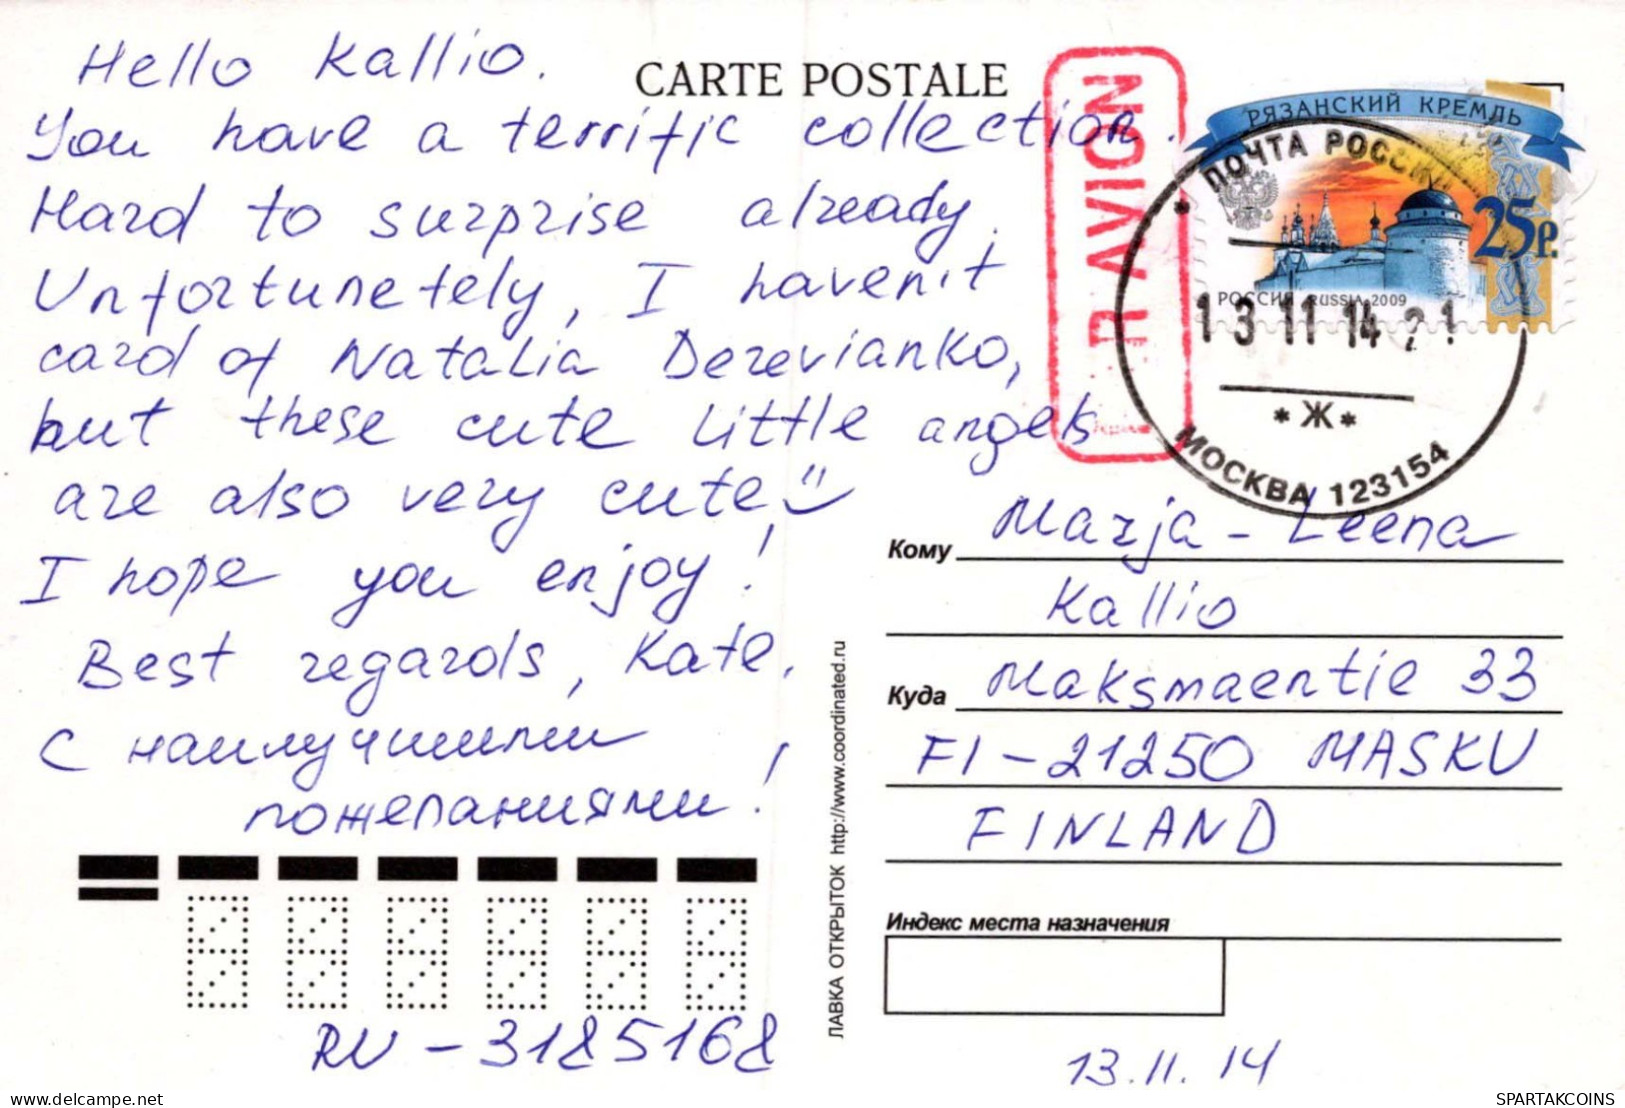 Hello Kallio.
You have a terrific collection.
Hard to surprise already.
Unfortunetely, I haven't
card of Natalia Derevianko,
but these cute little angels
are also very cute
I hope you enjoy!
Best regards, Kate.
С наилучшими
пожеланиями!
RU-3185168
CARTE POSTALE
R AVION
РЯЗАНСКИЙ КРЕМЛЬ
25р.
РОССИЯ RUSSIA 2009
ПОЧТА РОССИИ
13 11 14 21
*Ж*
МОСКВА 123154
Кому Marja-Leena
Kallio
Куда Maksmaentie 33
FI-21250 MASKU
FINLAND
Индекс места назначения
13.11.14
ЛАВКА ОТКРЫТОК http://www.coordinated.ru
the-collection.com
SPARTAKCOINS